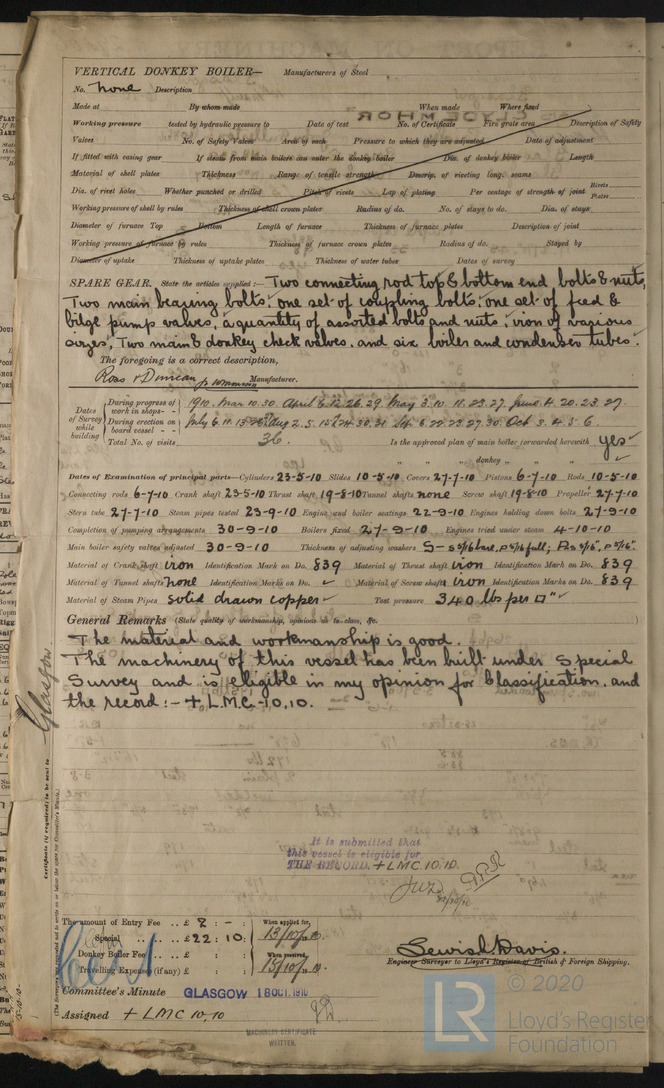 VERTICAL DONKEY BOILER— Manufacturers of Steel
No. None Description
Made at By whom made When made Where fixed
Working pressure tested by hydraulic pressure to Date of test No. of Certificate Fire grate area Description of Safety
Valves No. of Safety Valves Area of each Pressure to which they are adjusted Date of adjustment
If fitted with easing gear If steam from main boilers can enter the donkey boiler Dia. of donkey boiler Length
Material of shell plates Thickness Range of tensile strength Descrip. of riveting long. seams
Dia. of rivet holes Whether punched or drilled Pitch of rivets Lap of plating Per centage of strength of joint Rivets Plates
Working pressure of shell by rules Thickness of shell crown plates Radius of do. No. of stays to do. Dia. of stays
Diameter of furnace Top Bottom Length of furnace Thickness of furnace plates Description of joint
Working pressure of furnace by rules Thickness of furnace crown plates Radius of do. Stayed by
Diameter of uptake Thickness of uptake plates Thickness of water tubes Dates of survey
SPARE GEAR. State the articles supplied:— Two connecting rod top & bottom end bolts & nuts,
Two main bearing bolts: one set of coupling bolts: one set of feed &
bilge pump valves, a quantity of assorted bolts and nuts, iron of various
sizes, Two main & donkey check valves, and six boiler and condenser tubes.
The foregoing is a correct description,
Ross & Duncan Manufacturer.
Dates of Survey while building
During progress of work in shops - - 1910. Mar 10. 30. April 6. 12. 26. 29. May 3. 10. 11. 23. 27. June 4. 20. 23. 27.
During erection on board vessel - - - July 6. 11. 13. Aug 2. 5. 24. 30. 31. 27. 30. Oct 3. 4. 5. 6.
Total No. of visits 36. Is the approved plan of main boiler forwarded herewith yes
" " " donkey " " "
Dates of Examination of principal parts—Cylinders 23-5-10 Slides 10-5-10 Covers 27-7-10 Pistons 6-7-10 Rods 10-5-10
Connecting rods 6-7-10 Crank shaft 23-5-10 Thrust shaft 19-8-10 Tunnel shafts none Screw shaft 19-8-10 Propeller 27-7-10
Stern tube 27-7-10 Steam pipes tested 23-9-10 Engine and boiler seatings 22-9-10 Engines holding down bolts 27-9-10
Completion of pumping arrangements 30-9-10 Boilers fixed 27-9-10 Engines tried under steam 4-10-10
Main boiler safety valves adjusted 30-9-10 Thickness of adjusting washers S- 5/16 bare, P 5/16 full;
Material of Crank shaft iron Identification Mark on Do. 839 Material of Thrust shaft iron Identification Mark on Do. 839
Material of Tunnel shafts none Identification Marks on Do. Material of Screw shafts iron Identification Marks on Do. 839
Material of Steam Pipes solid drawn copper Test pressure 340 lbs per □"
General Remarks (State quality of workmanship, opinions as to class, &c.
The material and workmanship is good.
The machinery of this vessel has been built under Special
Survey and is eligible in my opinion for Classification, and
the record:- + L.M.C. 10.10.
Glasgow.
Certificate (if required) to be sent to
It is submitted that
this vessel is eligible for
THE RECORD. + LMC 10.10.
The amount of Entry Fee .. £ 2 : - : When applied for,
Special .. .. £ 22 : 10 : 13/10/10
Donkey Boiler Fee .. .. £ : : When received,
Travelling Expenses (if any) £ : :
Lewis Davis.
Engineer Surveyor to Lloyd's Register of British & Foreign Shipping.
Committee's Minute GLASGOW 18 OCT. 1910
Assigned + LMC 10,10
MACHINERY CERTIFICATE
WRITTEN.
LR © 2020
Lloyd's Register
Foundation